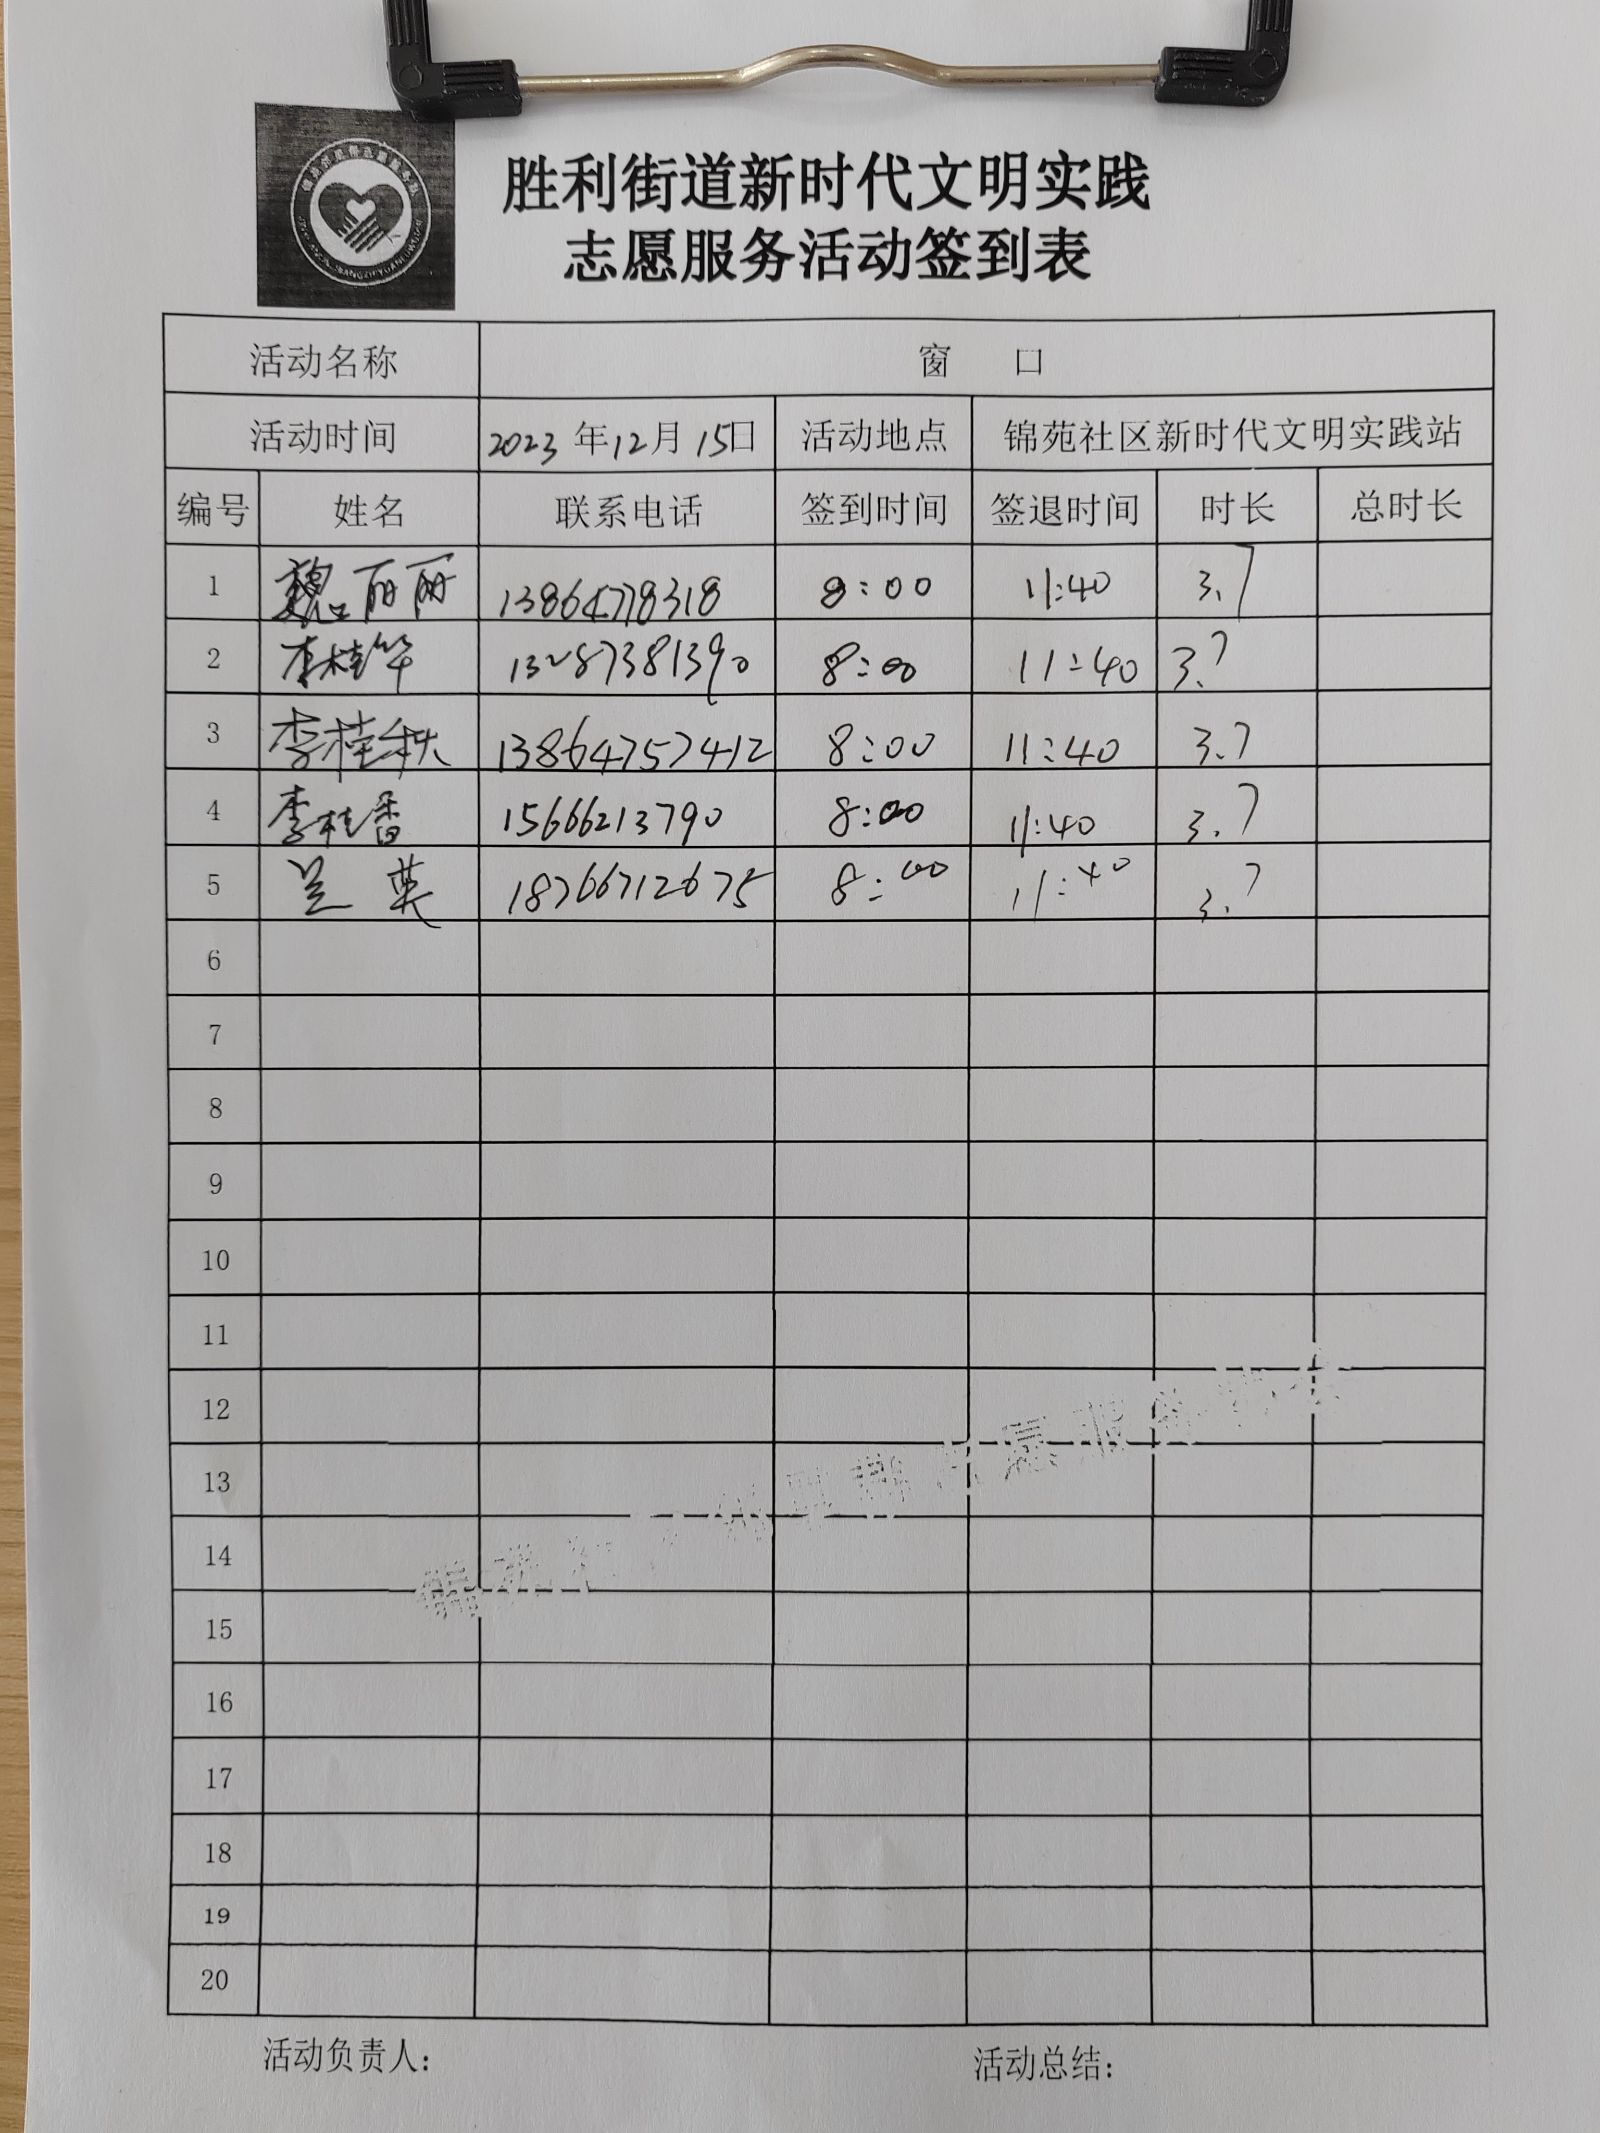 胜利街道新时代文明实践
志愿服务活动签到表
活动名称 窗 口
活动时间 2023 年12月15日 活动地点 锦苑社区新时代文明实践站
编号 姓名 联系电话 签到时间 签退时间 时长 总时长
1 魏丽丽 13864778318 8:00 11:40 3.7
2 李桂华 13287381390 8:00 11:40 3.7
3 李桂秋 13864757412 8:00 11:40 3.7
4 李桂香 15666213790 8:00 11:40 3.7
5 兰英 18766712675 8:00 11:40 3.7
6
7
8
9
10
11
12
13
14
15
16
17
18
19
20
活动负责人: 活动总结: